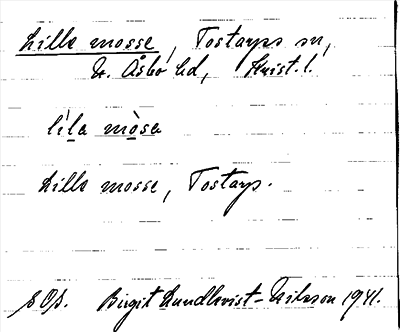 Lille mosse, Tostarps sn,
N. Åsbo hd, Krist. l.
lìla mòsa
Lille mosse, Tostarp.
SOp. Birgit Lundkvist-Nilsson 1941.